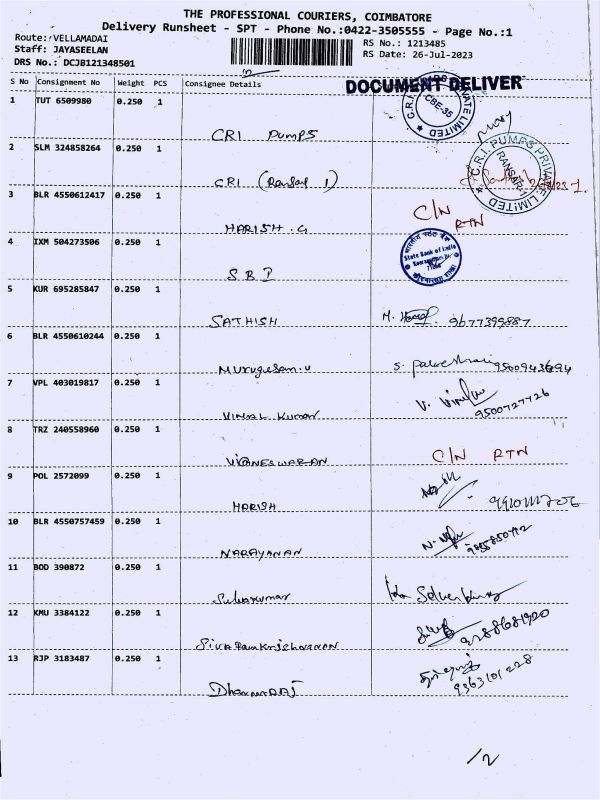 THE PROFESSIONAL COURIERS, COIMBATORE
Delivery Runsheet - SPT - Phone No.:0422-3505555 - Page No.:1
Route:VELLAMADAI
Staff: JAYASEELAN
DRS No.: DCJB121348501
RS No.: 1213485
RS Date: 26-Jul-2023
S No Consignment No Weight PCS Consignee Details
DOCUMENT DELIVER
1 TUT 6509980 0.250 1
CRI PUMPS
C.R.I. PUMPS PRIVATE LIMITED CBE-35
2 SLM 324858264 0.250 1
CRI (Ransar 1)
C.R.I. PUMPS PRIVATE LIMITED RANSAR-1
3 BLR 4550612417 0.250 1
HARISH. G
C/N RTN
4 IXM 504273506 0.250 1
SBI
State Bank of India
5 KUR 695285847 0.250 1
SATHISH
M. 9677399887
6 BLR 4550610244 0.250 1
Murugesan.u
S.
7 VPL 403019817 0.250 1
VIMAL KUMAR
V. 9500727726
8 TRZ 240558960 0.250 1
VIGNESWARAN
C/N RTN
9 POL 2572099 0.250 1
HARISH
10 BLR 4550757459 0.250 1
NARAYANAN
11 BOD 390872 0.250 1
12 KMU 3384122 0.250 1
Sivaramkrishnanan
9788681920
13 RJP 3183487 0.250 1
DhanmaRAJ
9363101228
12